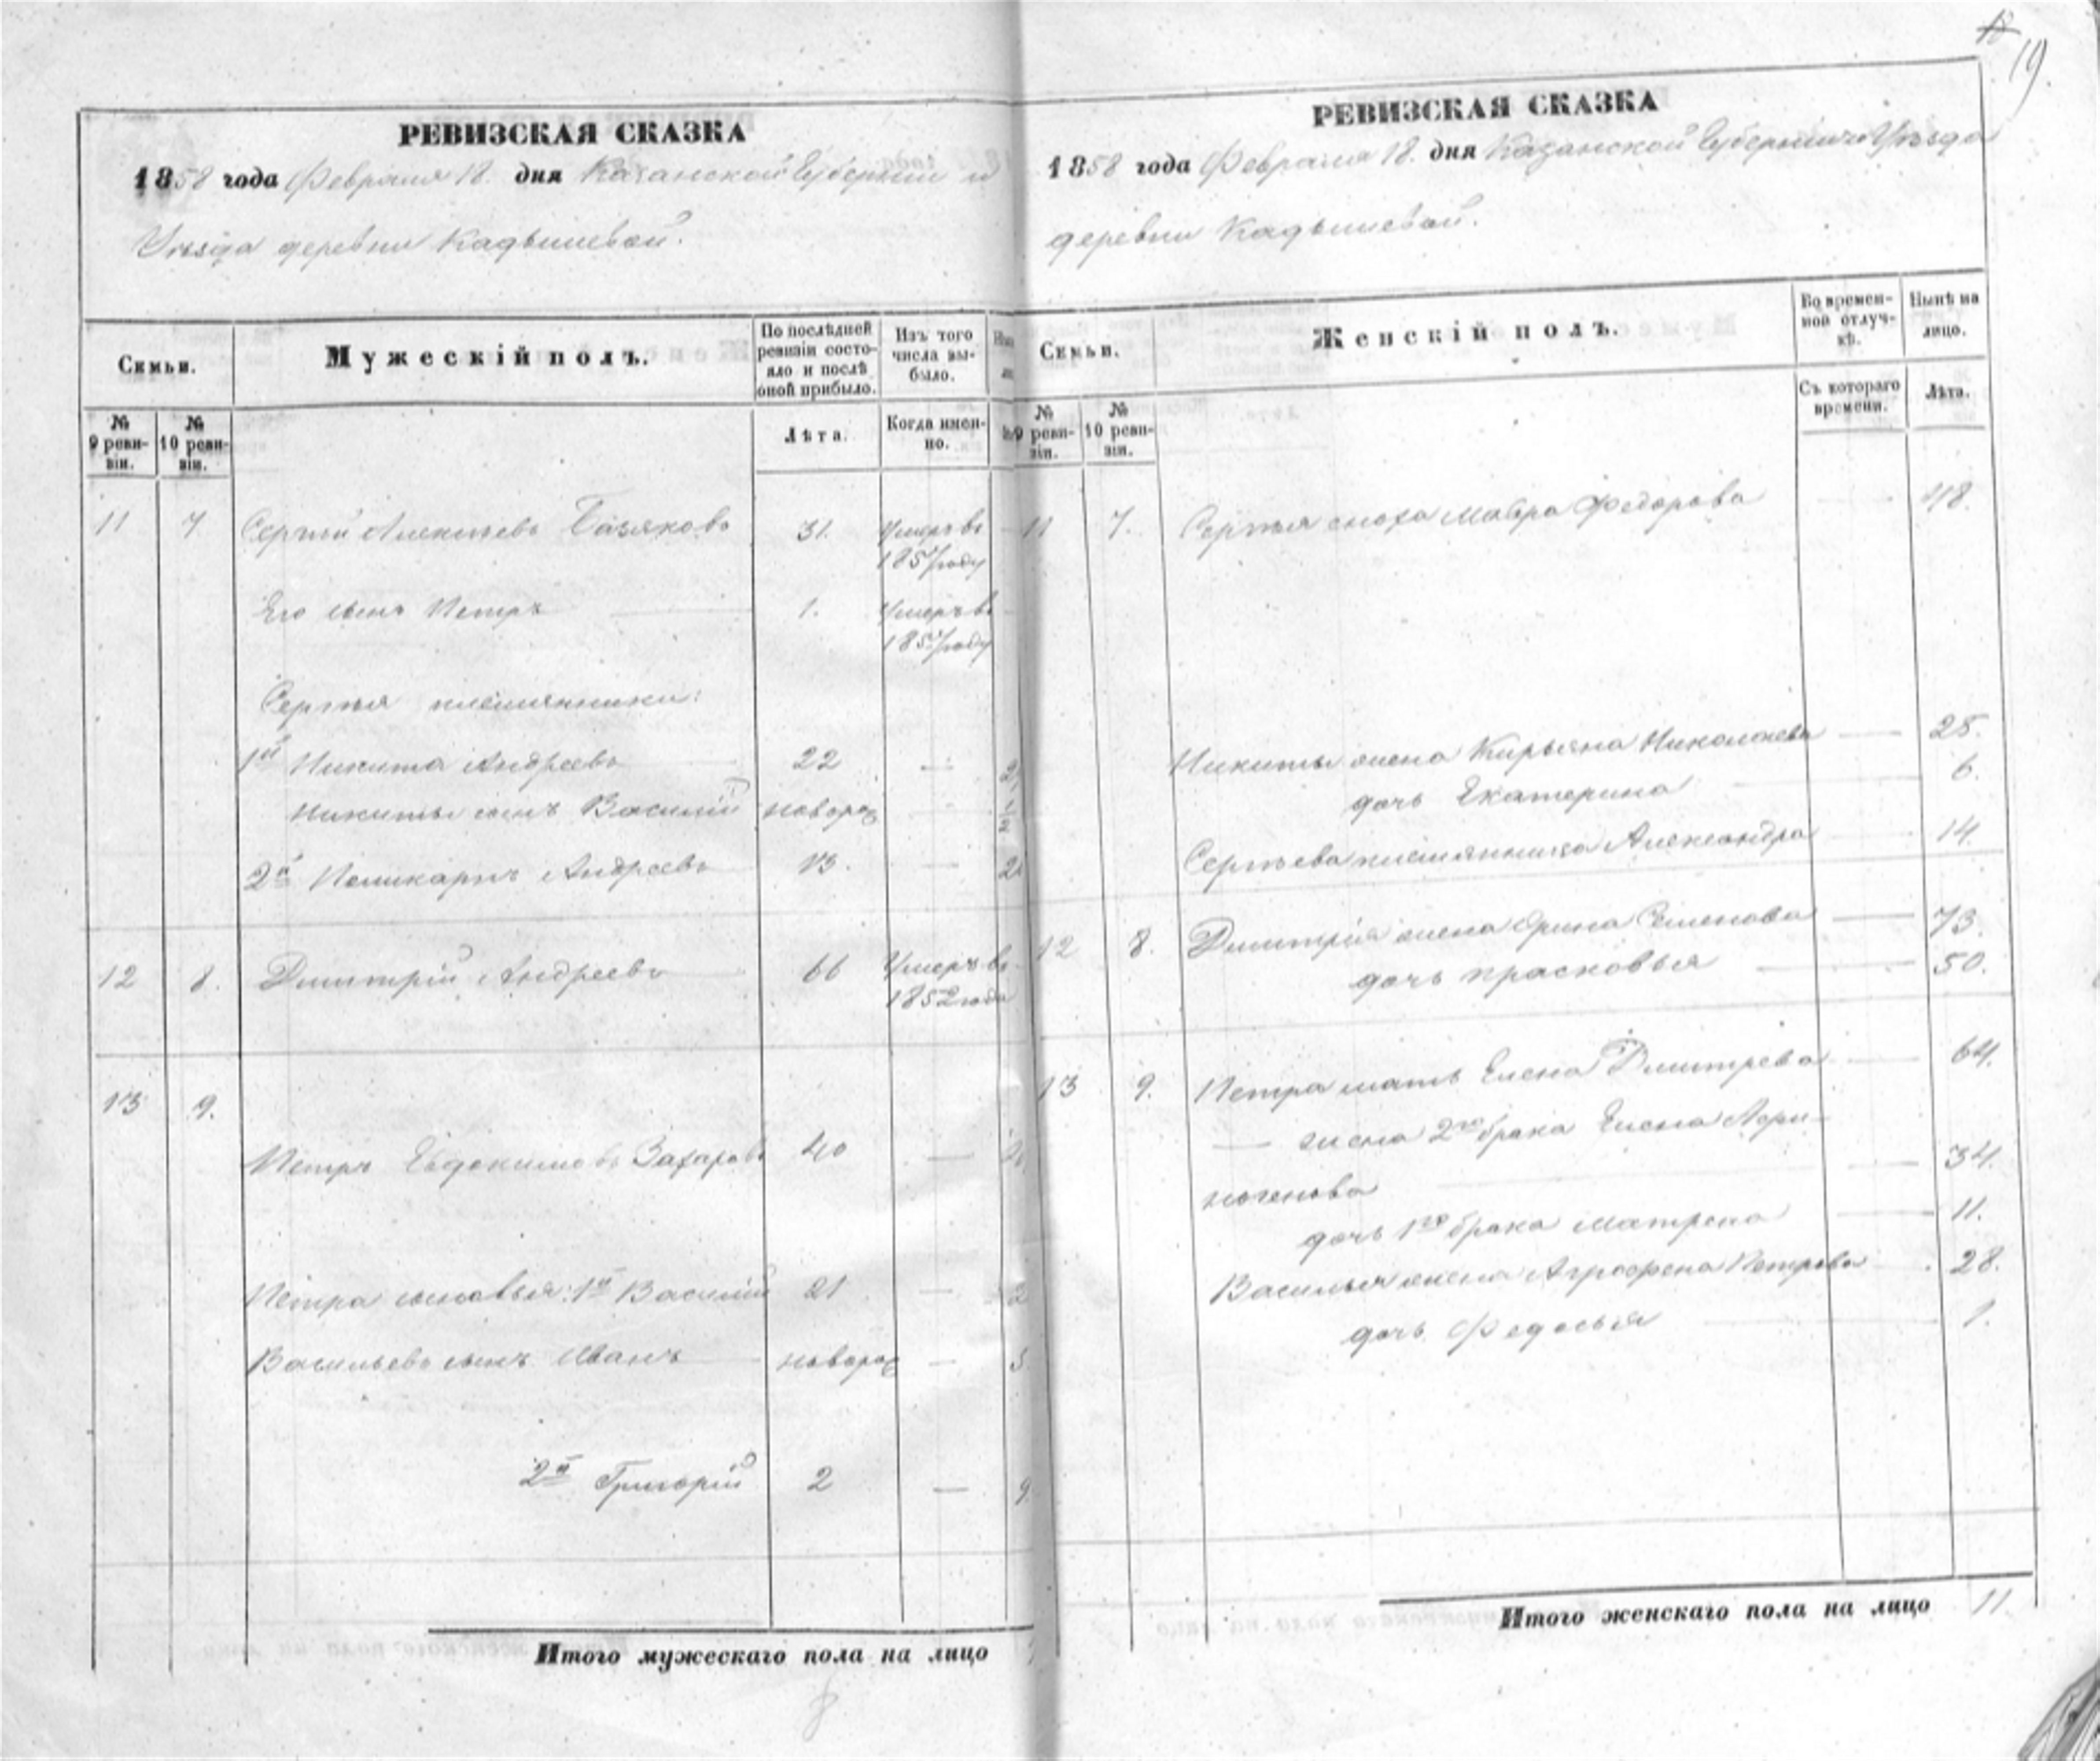 18 19
РЕВИЗСКАЯ СКАЗКА
1858 года Февраля 18. дня Казанской Губернии и
Уѣзда деревни Кадышевой.
Семьи.
Мужескій полъ.
По послѣдней ревизіи состояло и послѣ оной прибыло.
Изъ того числа выбыло.
№ 9 ревизіи.
№ 10 ревизіи.
Лѣта.
Когда именно.
11 7 Сергѣй Алексѣевъ 31. Умеръ въ
1857 году
Его сынъ Петръ 1. Умеръ въ
1857 году
Сергѣя племянники:
1й Никита Андреевъ 22 —
Никиты сынъ Василій новорож —
2й Поликарпъ Андреевъ 13. —
12 8. Дмитрій Андреевъ 66 Умеръ въ
1852 года
13 9.
Петръ Евдокимовъ Захаровъ 40 —
Петра сыновья: 1й Василій 21 —
Васильевъ сынъ Иванъ новорож —
2й Григорій 2 —
Итого мужескаго пола на лицо
8
РЕВИЗСКАЯ СКАЗКА
1858 года Февраля 18. дня Казанской Губерніи и Уѣзда
деревни Кадышевой.
Семьи.
Женскій полъ.
Во временной отлучкѣ.
Нынѣ на лицо.
№ 9 ревизіи.
№ 10 ревизіи.
Съ котораго времени.
Лѣта.
11 7. Сергѣя сноха Мавра Федорова — 48.
Никиты жена Кирьяна Николаева — 25.
дочь Екатерина — 6.
Сергѣева племянница Александра — 14.
12 8. Дмитрія жена Орина Семенова — 73.
дочь Прасковья — 50.
13 9. Петра мать Елена Дмитрева — 64.
— жена 2го брака Елена
— 34.
дочь 1го брака Матрена — 11.
Василья жена Аграфена Петрова — 28.
дочь Федосья — 1.
Итого женскаго пола на лицо 11.